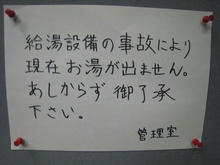 給湯設備の事故により
現在お湯が出ません。
あしからず御了承
下さい。
管理室